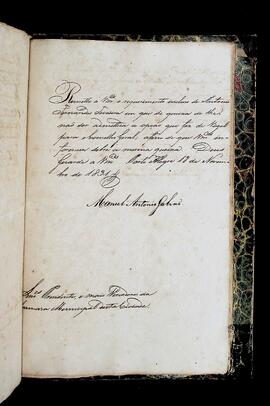 Remetto a Vm.ce o requerimento incluso de Antonio
em que se queixa de lhe
não ser admittida a opção que fez de Vogal
para o Conselho Geral, afim de que Vm.ce in-
forme sobre a mesma queixa. Deos
Guarde a Vm.ce Porto Alegre 17 de Novem-
bro de 1831
Manoel Antonio Galvão
Snr. Presidente, e mais Vereadores da
Camara Municipal desta Cidade.